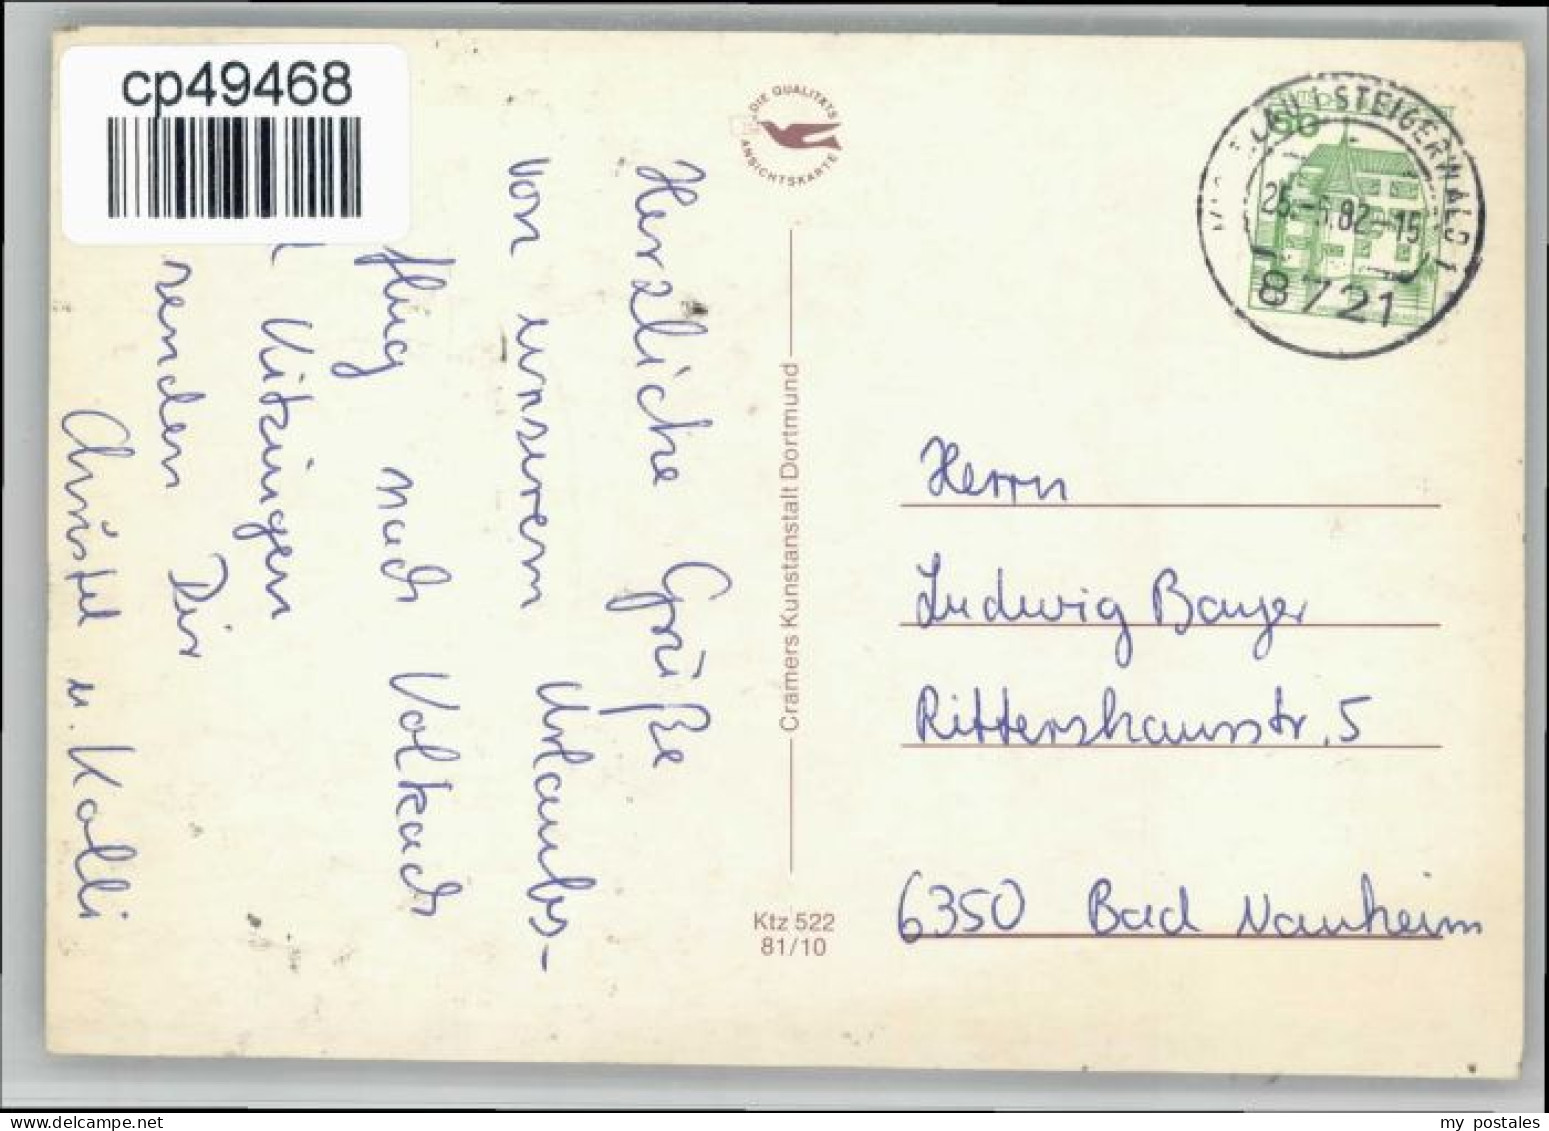 cp49468
Herzliche Grüße
von unserem Urlaubs-
flug nach Volkach
Kitzingen
senden Dir
Christel u. Kalli
DIE QUALITÄTS
ANSICHTSKARTE
Cramers Kunstanstalt Dortmund
Ktz 522
81/10
STEIGERWALD 1
25.-6.82-15
8721
Herrn
Ludwig Bayer
Rittershausstr. 5
6350 Bad Nauheim
my postales